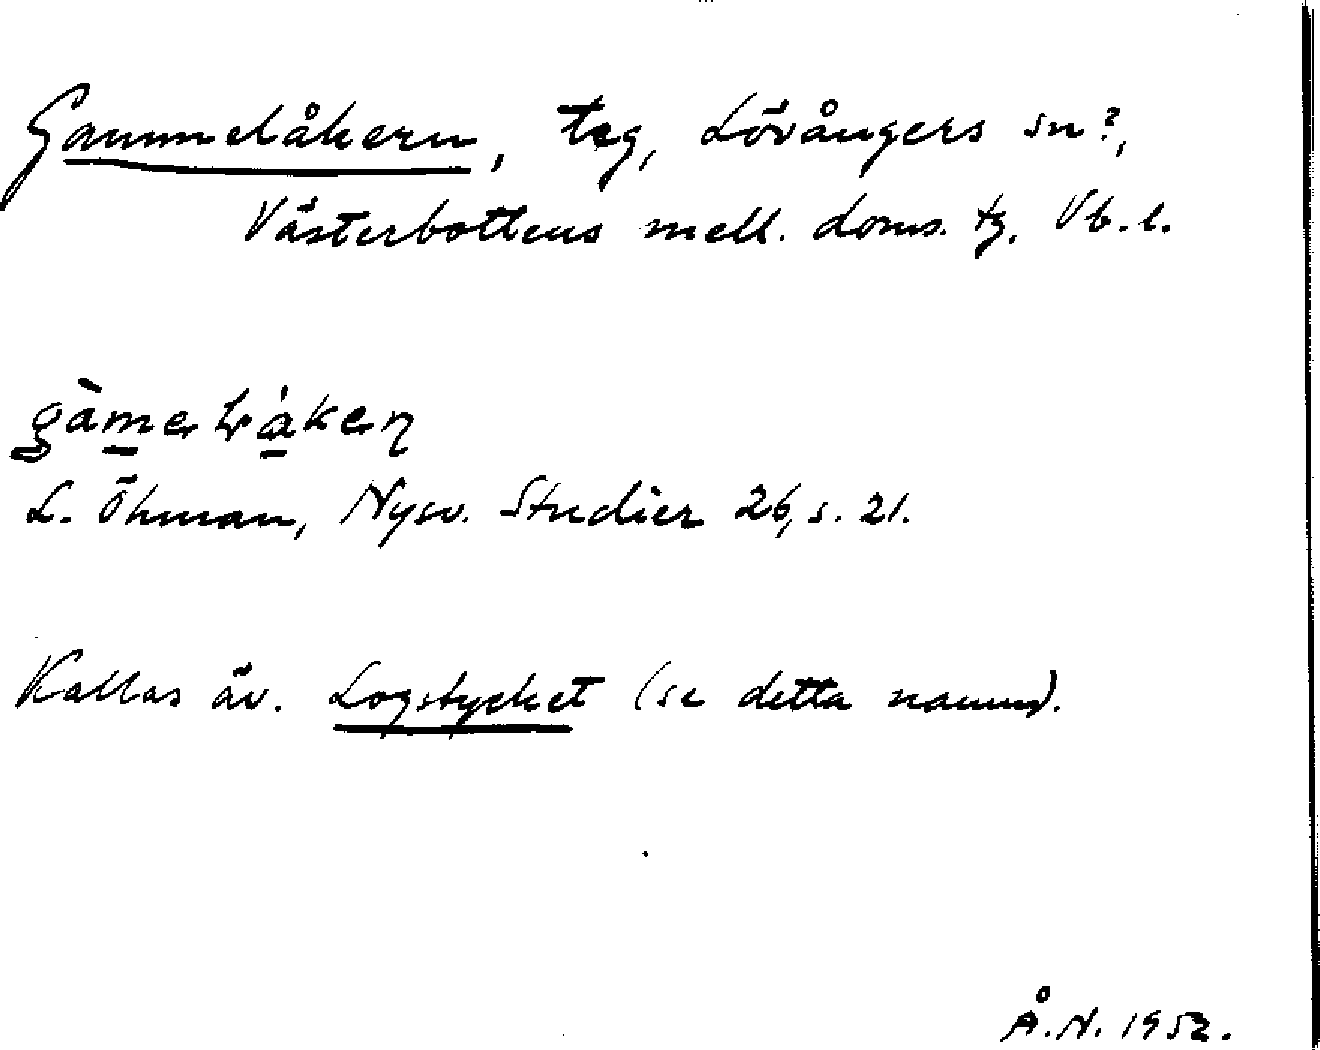 Gammelåkern, teg, Lövångers sn?,
Västerbottens mell. doms. tg. Vb. l.
L. Öhman, Nysv. Studier 26, s. 21.
Kallas äv. Logstycket (se detta namn).
Å.N. 1952.